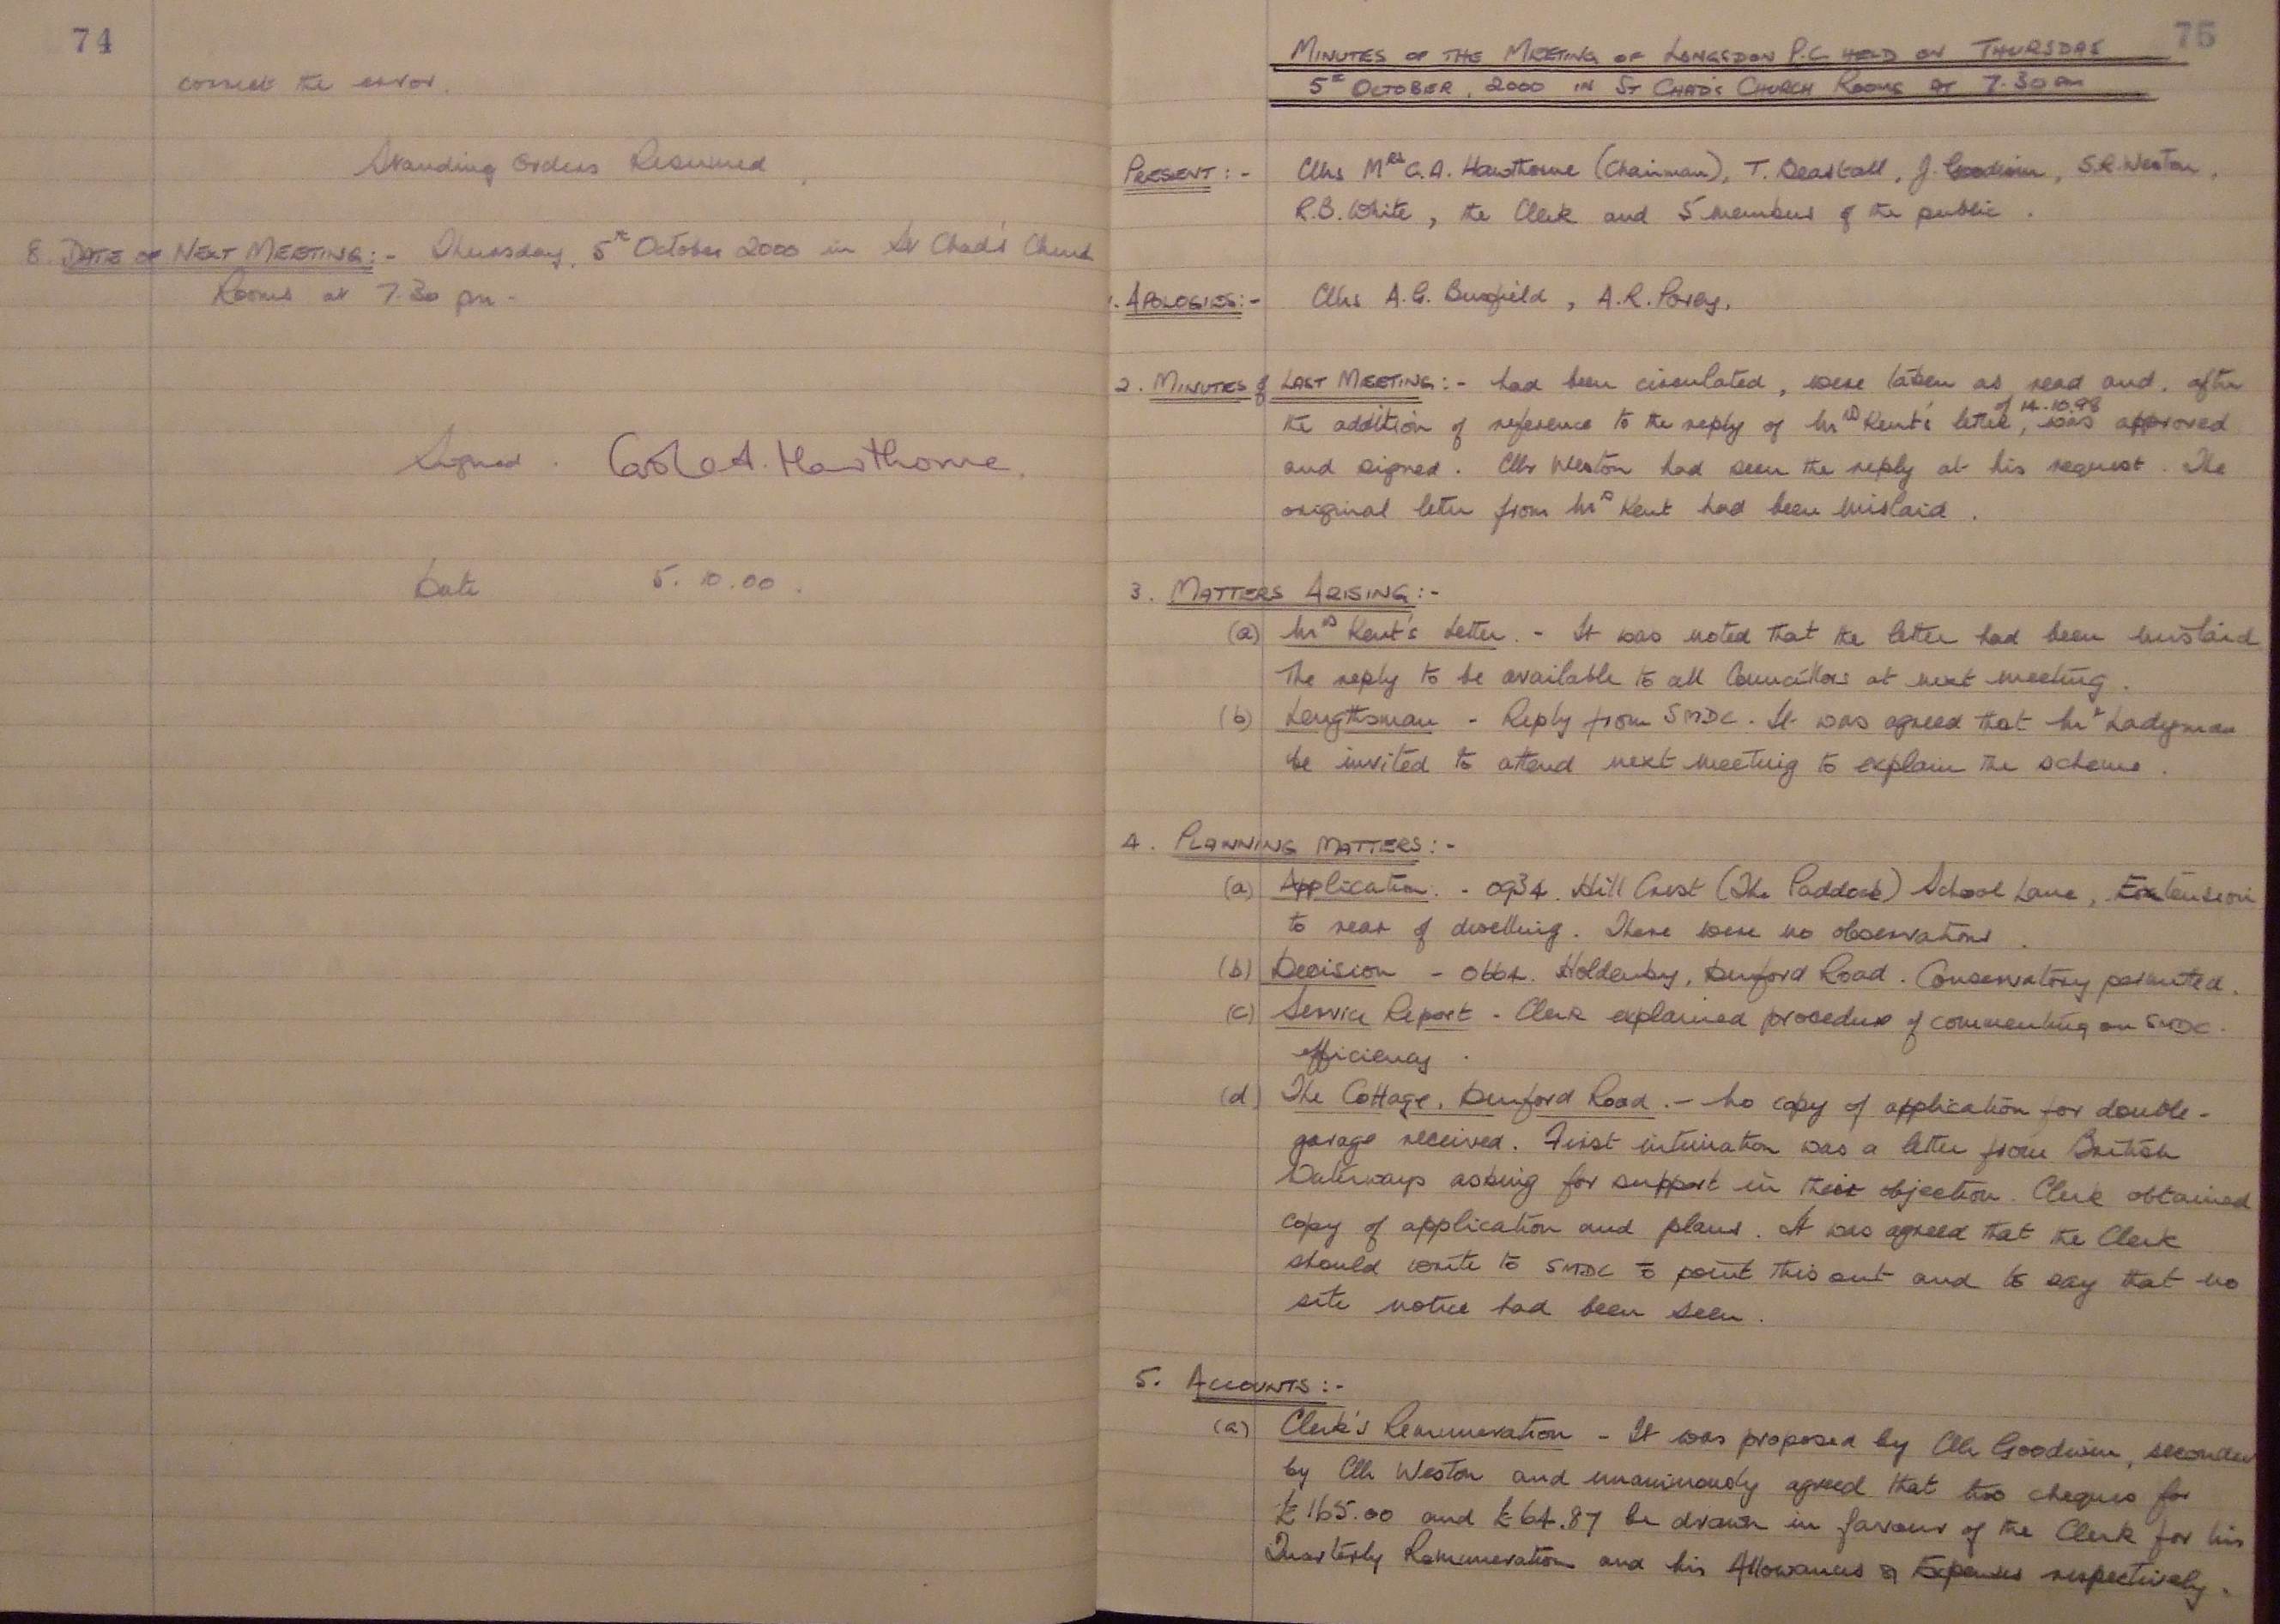 74
correct the error.
Standing Orders Resumed
8. DATE OF NEXT MEETING:- Thursday, 5th October 2000 in St Chad's Church
Rooms at 7.30 pm.
Signed. Carole A. Hawthorne.
Date 5.10.00.
75
MINUTES OF THE MEETING OF LONGSDON P.C. HELD ON THURSDAY
5th OCTOBER, 2000 IN ST CHAD'S CHURCH ROOMS AT 7.30 pm
PRESENT:- Cllrs Mrs C.A. Hawthorne (Chairman), T. Beastall, J. Goodwin, S.R. Weston,
R.B. White, the Clerk and 5 members of the public.
1. APOLOGIES:- Cllrs A.G. Burfield, A.R. Povey.
2. MINUTES of LAST MEETING:- had been circulated, were taken as read and, after
of 14.10.98
the addition of reference to the reply of Mrs Kent's letter, was approved
and signed. Cllr Weston had seen the reply at his request. The
original letter from Mrs Kent had been mislaid.
3. MATTERS ARISING:-
(a) Mrs Kent's Letter. - It was noted that the letter had been mislaid
The reply to be available to all Councillors at next meeting.
(b) Lengthsman - Reply from SMDC. It was agreed that Mr Ladyman
be invited to attend next meeting to explain the scheme.
4. PLANNING MATTERS:-
(a) Application. - 0934. Hill Crest (The Paddock) School Lane, Extension
to rear of dwelling. There were no observations.
(b) Decision - 0664. Holdenby, Denford Road. Conservatory permitted.
(c) Service Report - Clerk explained procedure of commenting on SMDC.
efficiency.
(d) The Cottage, Denford Road. - No copy of application for double-
garage received. First intimation was a letter from British
Waterways asking for support in their objection. Clerk obtained
copy of application and plans. It was agreed that the Clerk
should write to SMDC to point this out and to say that no
site notice had been seen.
5. ACCOUNTS:-
(a) Clerk's Remuneration - It was proposed by Cllr Goodwin, seconded
by Cllr Weston and unanimously agreed that two cheques for
£165.00 and £64.87 be drawn in favour of the Clerk for his
Quarterly Remuneration and his Allowances & Expenses respectively.